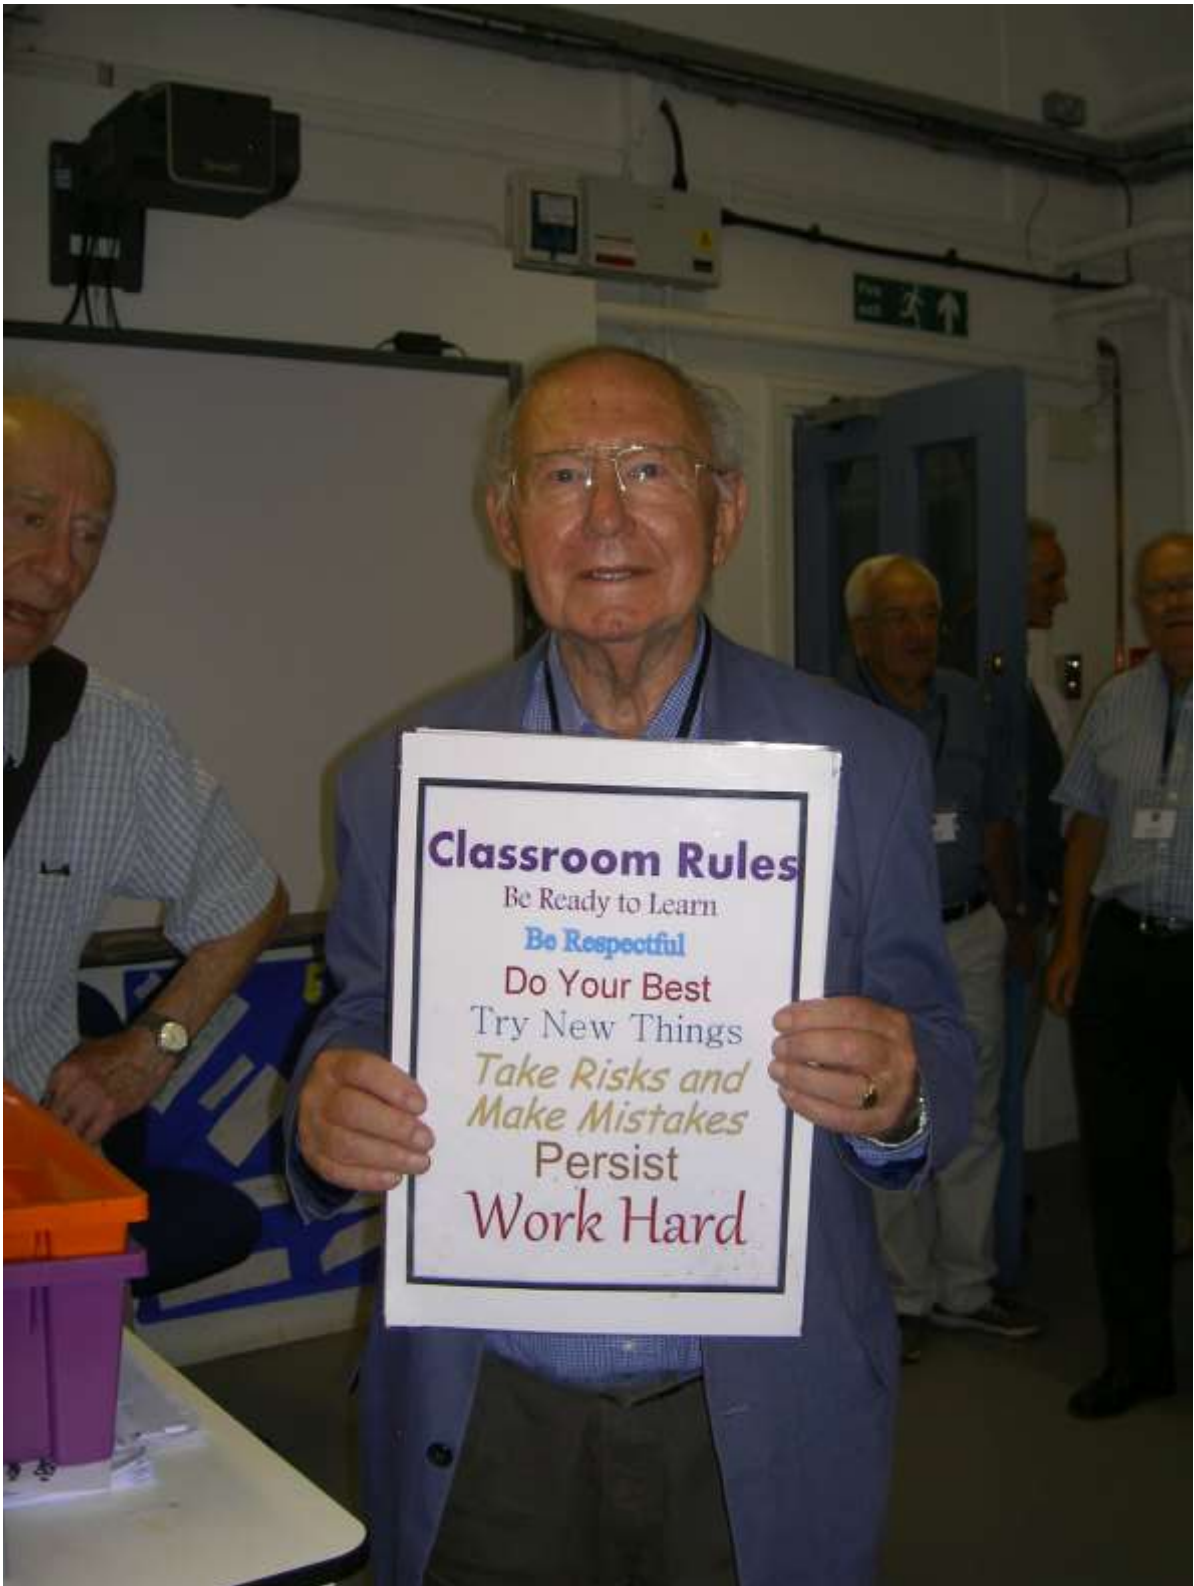 Fire
exit
Classroom Rules
Be Ready to Learn
Be Respectful
Do Your Best
Try New Things
Take Risks and
Make Mistakes
Persist
Work Hard